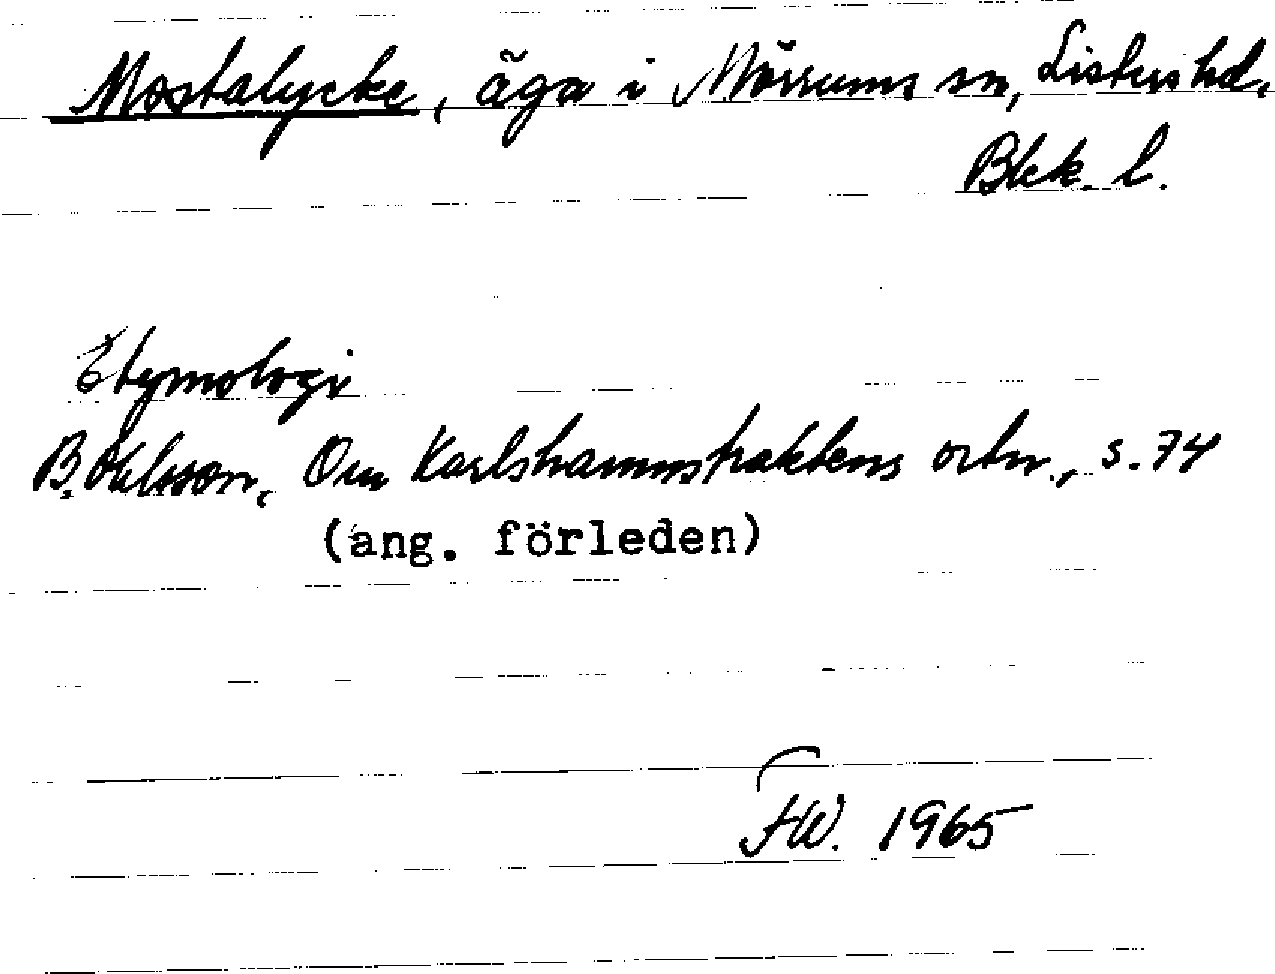 Mostalycke, äga i Mörrums sn, Listers hd,
Blek. l.
Etymologi
B. Ohlsson, Om Karlshamnstraktens ortn., s. 74
(ang. förleden)
FW. 1965